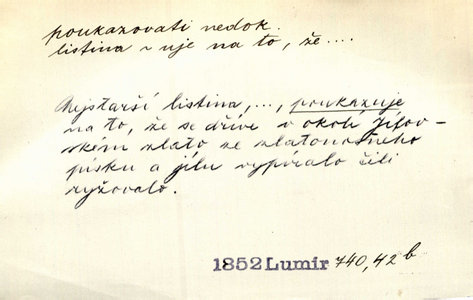 poukazovati nedok.
listina ~uje na to, že....
Nejstarší listina,..., poukazuje
na to, že se dříve v okolí Jílov-
ském zlato ze zlatonosného
písku a jílu vypíralo čili
rýžovalo.
1852 Lumír 740,42 b